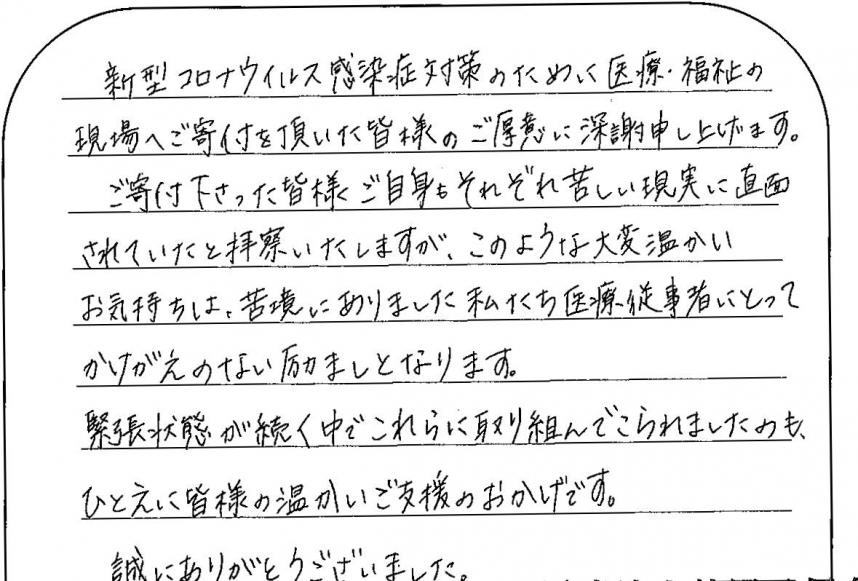 新型コロナウイルス感染症対策のために医療・福祉の
現場へご寄付を頂いた皆様のご厚意に深謝申し上げます。
ご寄付下さった皆様ご自身もそれぞれ苦しい現実に直面
されていたと拝察いたしますが、このような大変温かい
お気持ちは、苦境にありました私たち医療従事者にとって
かけがえのない励ましとなります。
緊張状態が続く中でこれらに取り組んでこられましたのも、
ひとえに皆様の温かいご支援のおかげです。
誠にありがとうございました。